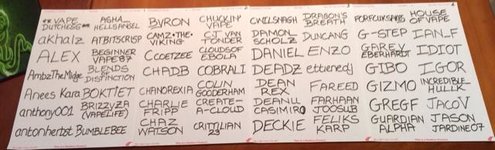 **VAPE DUTCHESS**
akhalz
ALEX
AmbzTheMidge
Anees Kara
anthony001
antonherbst
ASHA_HELLSANGEL
ATBITSCRISP
BEGINNER VAPE87
BLENDS OF DISTINCTION
BOKTIET
BRIZZYZA (VAPELIFE)
BUMBLEBEE
BYRON
CAMZ•THE•VIKING
CCOETZEE
CHADB
CHANOREXIA
CHARLIE FRIPP
CHAZ WATSON
CHUCKIN' VAPE
CJ VAN TONDER
CLOUDSOF EBOLA
COBRALI
COLIN GOODERHAM
CREATE-A-CLOUD
CRITTILIAN 23
CWELSNAGH
DAMON SCHOLZ
DANIEL
DEADZ
DEAN REX
DEANLL CASIMIRO
DECKIE
DRAGON'S BREATH
DUNCAN
ENZO
ettienedj
FAREED
FARHAAN JOOSUB
FELIKS KARP
G-STEP
GAREY EBERHARDT
GIBO
GIZMO
GREGF
GUARDIAN ALPHA
HOUSE OF VAPE
IAN_F
IDIOT
IGOR
INCREDIBLE HULLK
JACOV
JASON JARDINE07